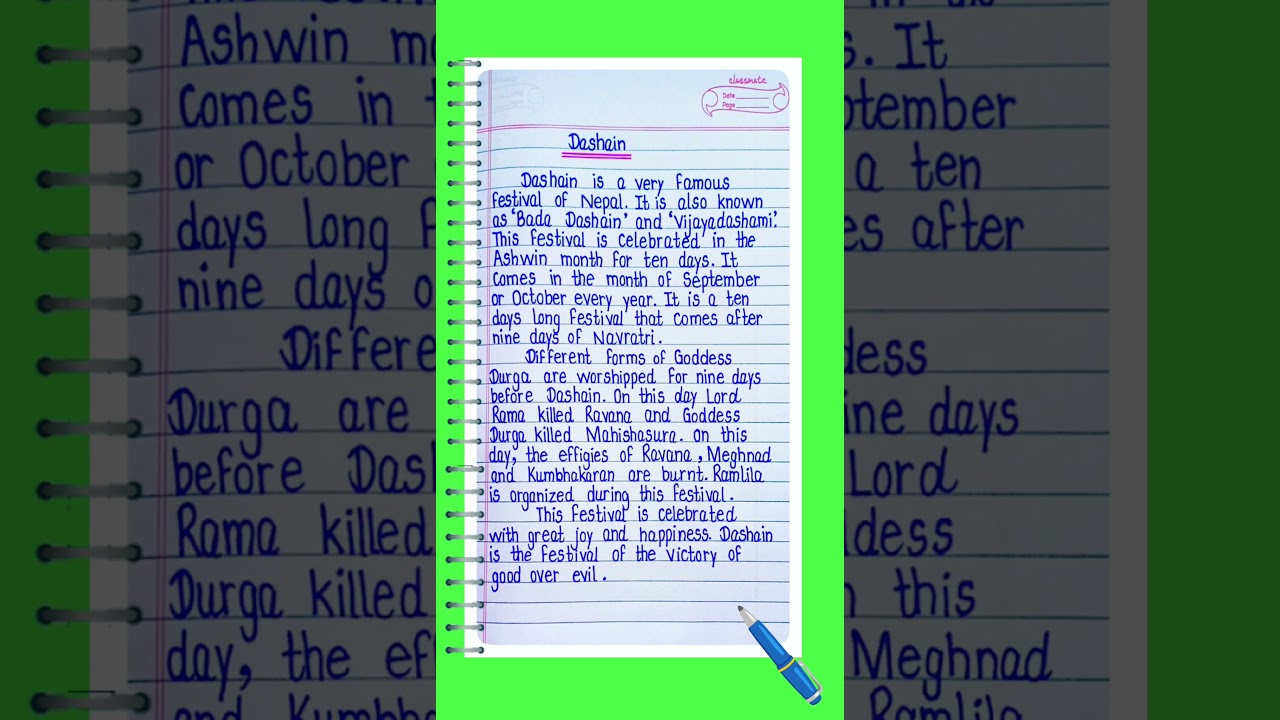 classmate
Date
Page
Dashain
Dashain is a very famous
festival of Nepal. It is also known
as 'Bada Dashain' and 'Vijayadashami'.
This festival is celebrated in the
Ashwin month for ten days. It
comes in the month of September
or October every year. It is a ten
days long festival that comes after
nine days of Navratri.
Different forms of Goddess
Durga are worshipped for nine days
before Dashain. On this day Lord
Rama killed Ravana and Goddess
Durga killed Mahishasura. On this
day, the effigies of Ravana, Meghnad
and Kumbhakaran are burnt. Ramlila
is organized during this festival.
This festival is celebrated
with great joy and happiness. Dashain
is the festival of the victory of
good over evil.